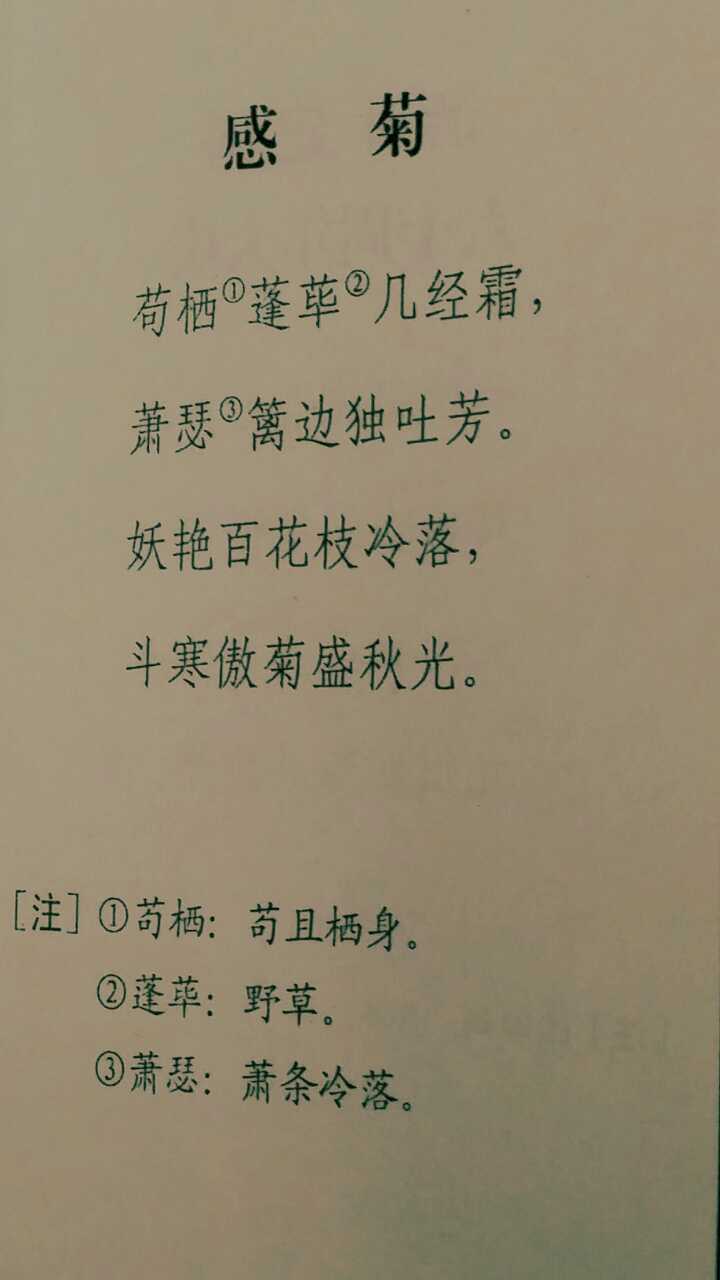 感 菊
苟栖①蓬荜②几经霜，
萧瑟③篱边独吐芳。
妖艳百花枝冷落，
斗寒傲菊盛秋光。
[注]①苟栖：苟且栖身。
②蓬荜：野草。
③萧瑟：萧条冷落。